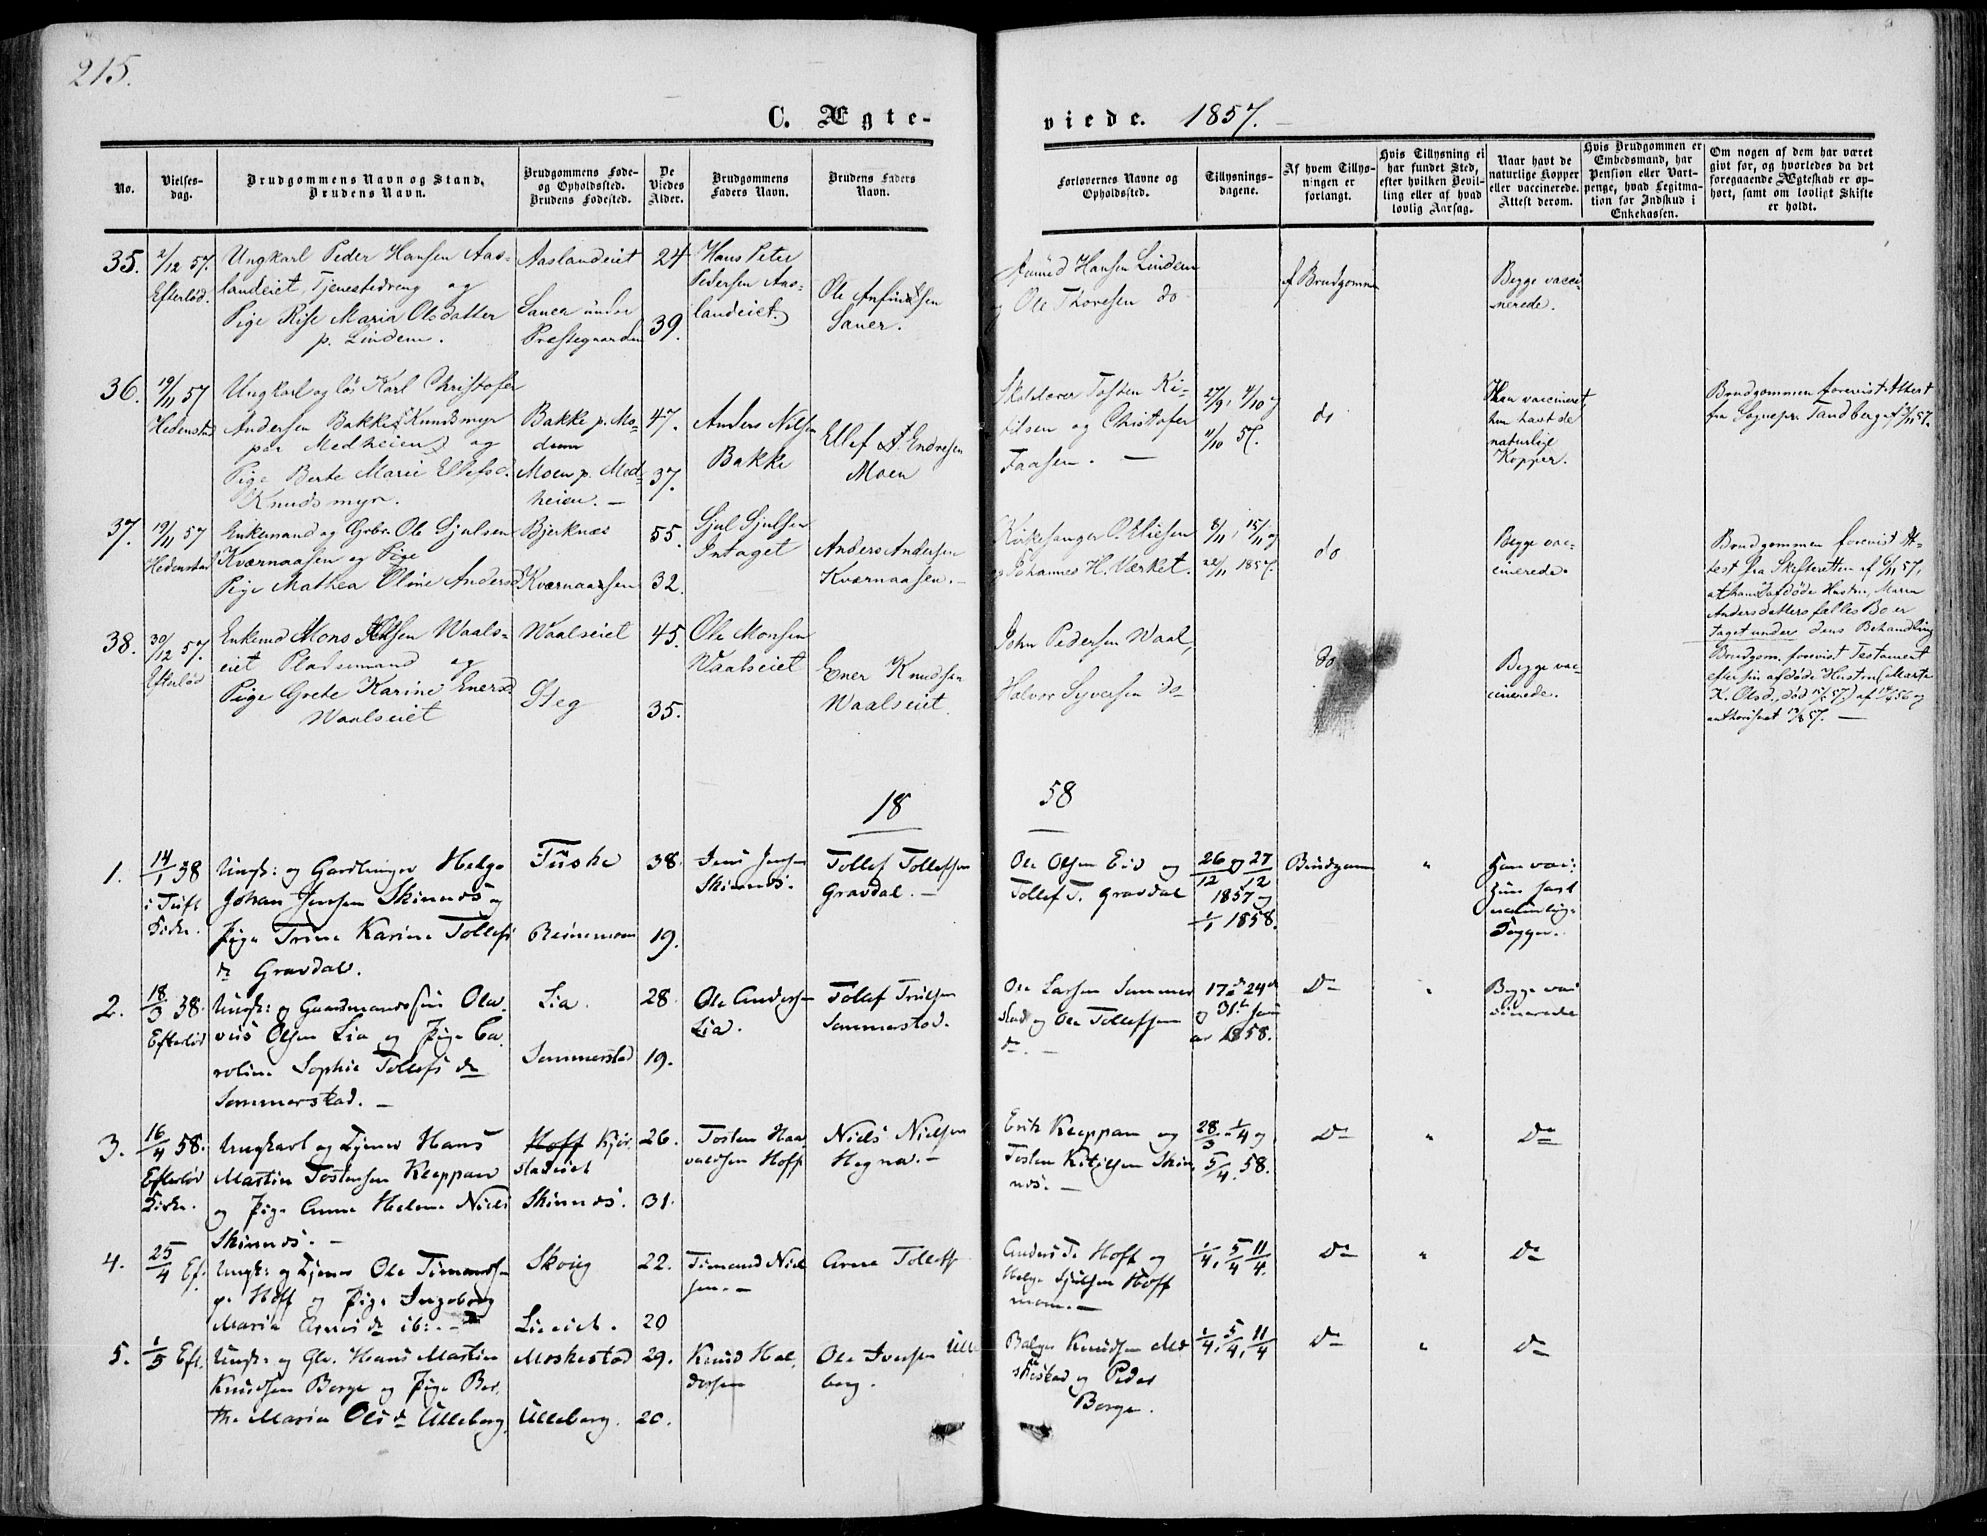 215.
C. Ægte-
viede. 1857.
No.
Vielses-
dag.
Brudgommens Navn og Stand,
Brudens Navn.
Brudgommens Føde-
og Opholdsted.
Brudens Fødested.
De
Viedes
Alder.
Brudgommens
Faders Navn.
Brudens Faders
Navn.
Forlovernes Navne og
Opholdsted.
Tillysnings-
dagene.
Af hvem Tillys-
ningen er
forlangt.
Hvis Tillysning ei
har fundet Sted,
efter hvilken Bevil-
ling eller af hvad
lovlig Aarsag.
Naar havt de
naturlige Kopper
eller vaccinerede.
Attest derom.
Hvis Brudgommen er
Embedsmand, har
Pension eller Vart-
penge, hvad Legitma-
tion for Indskud i
Enkekassen.
Om nogen af dem har været
gift før, og hvorledes da det
foregaaende Ægteskab er op-
hørt, samt om lovligt Skifte
er holdt.
35.
2/12 57.
Efterlød.
Ungkarl Peder Hansen Aas-
landeiet, Tjenestedreng og
Pige Rise Maria Olsdatter
p. Lindem.
Aaslandeiet
Sauer under
Præstegaarden
24
39.
Hans Peter
Pedersen Aas-
landeiet.
Ole Anfindsen
Sauer.
Hansen Lindem
Ole Thoresen do
Brudgommen
Begge vacci-
nerede.
36.
19/11 57
Hedenstad
Ungkarl og løs Karl Christofer
Andersen Bakke, Knudsmyr
paa Medheien og
Pige Berte Marie Ellefsd.
Knudsmyr.
Bakke p. Mo-
dum
Moen p. Med-
heien. -
47.
37.
Anders Nilsen
Bakke
Ellef Endresen
Moen
Tosten Ki-
tilsen og Christofer
Faasen. -
27/9, 4/10 og
11/10 57.
do
Han vaccineret,
hun havt de
naturlige
Kopper.
Brudgommen forevist Attest
fra Sognepr. Tandberg af 9/11 57.
37.
19/11 57
Hedenstad
Enkemand og Grbr. Ole Gjulsen
Kværnaasen og Pige
Pige Mathea Oline Andersd.
Bjerknæs
Kværnaasen
55.
32.
Gjul Gjulsen
Intaget
Anders Andersen
Kværnaasen. -
Kirkesanger O. Eliesen
og Johannes H. Værket.
8/11, 15/11 og
22/11 1857.
do
Begge vac-
cinerede.
Brudgommen forevist At-
test fra Skifteretten af 6/11 57,
at hans afdøde Hustru, Maren
Andersdatters fælles Bo er
taget under dens Behandling
38.
30/12 57.
Efterlød
Enkemd Mons Olsen Waals-
eiet Pladsemand og
Pige Grete Karine Enersd.
Waalseiet
Waalseiet
Steg
45.
35.
Ole Monsen
Waalseiet
Ener Knudsen
Waalseiet
John Pedersen Waal,
Halvor Syversen do
do
Begge vac-
cinerede.
Brudgom. forevist Testament
efter sin afdøde Hustru (Marte
K. Olsd., død 15/5 57) af 14/6 56 og
authoriseret 17/8 57. -
18
58
1.
14/1 58
i Tuft
Kirke.
Ungk: og Gaardbruger Helge
Johan Jensen Skinnæs og
Pige Trine Karine Tollefs
dr Gravdal.
Fuske
38.
19.
Jens Jensen
Skinnæs.
Tollef Tollefsen
Gravdal. -
Ole Olsen Eid og
Tollef T. Gravdal
26/12 og 27/12
1857 og
1/1 1858.
Brudgom
"
Han vac:
Hun havt
naturlige
Kopper.
2.
18/3 58.
Efterløv
Ungk: og Gaardmandssøn Ola-
vus Olsen Lia og Pige Ca-
roline Sophie Tollefs dr
Sommerstad. -
Lia.
Sommerstad
28.
19.
Ole Andersen
Lia.
Tollef Trulsen
Sommerstad.
Ole Larsen Sommer
stad og Ole Tollefsen
do. -
17de 24de
og 31te Janu
ar 1858.
Do
"
Begge vac
cinerede
3.
16/4 58.
Efterløv
Kirke.
Ungkarl og Tjener Hans
Martin Tostensen Kleppan
og Pige Anne Helene Niels
Skinnæs. -
Hoff Kjør-
stadeiet
Skinnæs.
26.
31.
Tosten Haa-
valdsen Hoff
Niels Nielsen
Hegna. -
Erik Kleppan og
Tosten Kitilsen Skin
næs. -
28/3, 1/4 og
5/4. 58.
Do
"
Do
4.
25/4 Ef.
Ungk: og Tjener Ole Timandsen
p. Hoff og Pige Ingeborg
Maria Arnes dr ib: -
Skoug
Lieeiet.
22.
20
Timand Niel
sen. -
Arne Tollefs
Anders T. Hoff og
Helge Gjulsen Hoff
moen. -
1/4, 5/4 11/4.
Do
"
Do
5.
1/5 Eft.
Ungk: og Gbr. Hans Martin
Knudsen Berge og Pige Ber-
the Maria Ols dr Ulleberg.
Moskestad
Ulleberg.
29.
20.
Knud Hal-
dorsen
Ole Iversen Ulle
berg.
Knudsen
og Peder
Berge.
1/4, 5/4, 11/4
Do
"
Do